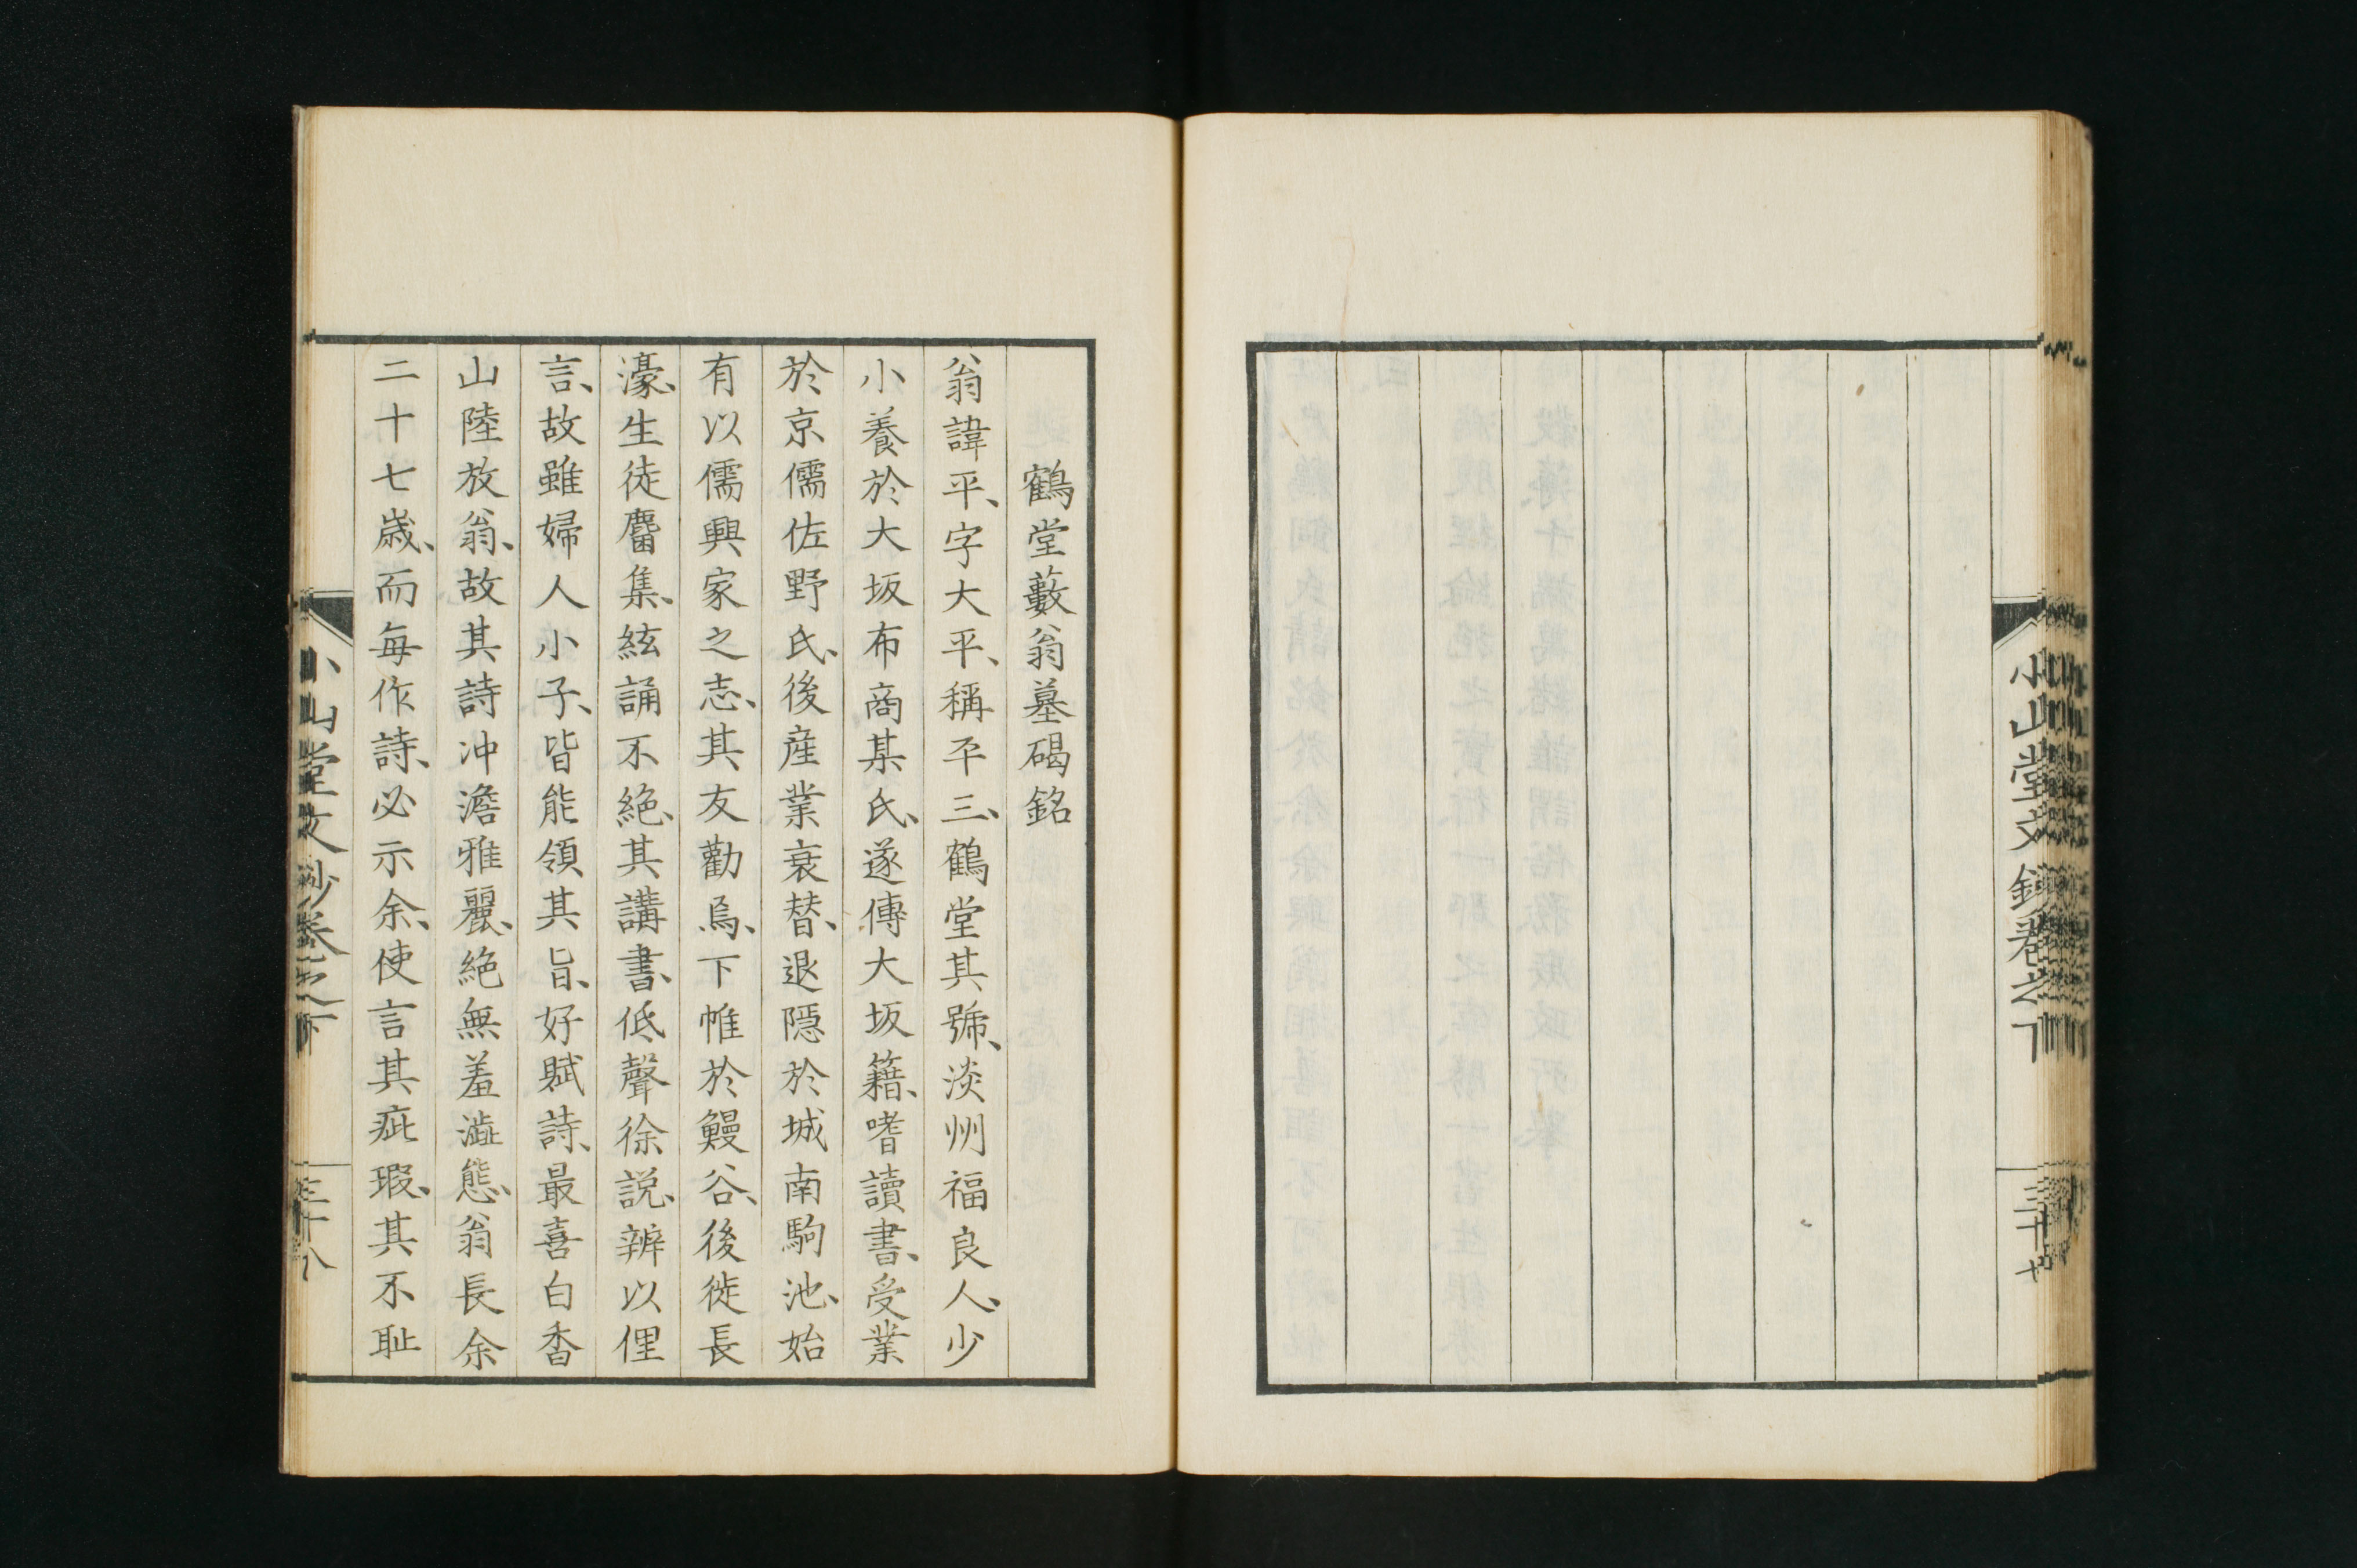 小山堂文鈔卷之下
三十七
鶴堂藪翁墓碣銘
翁諱平、字大平、稱平三、鶴堂其號、淡州福良人、少
小養於大坂布商某氏、遂傳大坂籍、嗜讀書、受業
於京儒佐野氏、後産業衰替、退隱於城南駒池、始
有以儒興家之志、其友勸焉、下帷於鰻谷、後徙長
濠、生徒麕集、絃誦不絶、其講書、低聲徐説、辨以俚
言、故雖婦人小子、皆能領其旨、好賦詩、最喜白香
山陸放翁、故其詩冲澹雅麗、絶無羞澁態、翁長余
二十七歳、而每作詩、必示余、使言其疵瑕、其不恥
小山堂文鈔卷之下
三十八